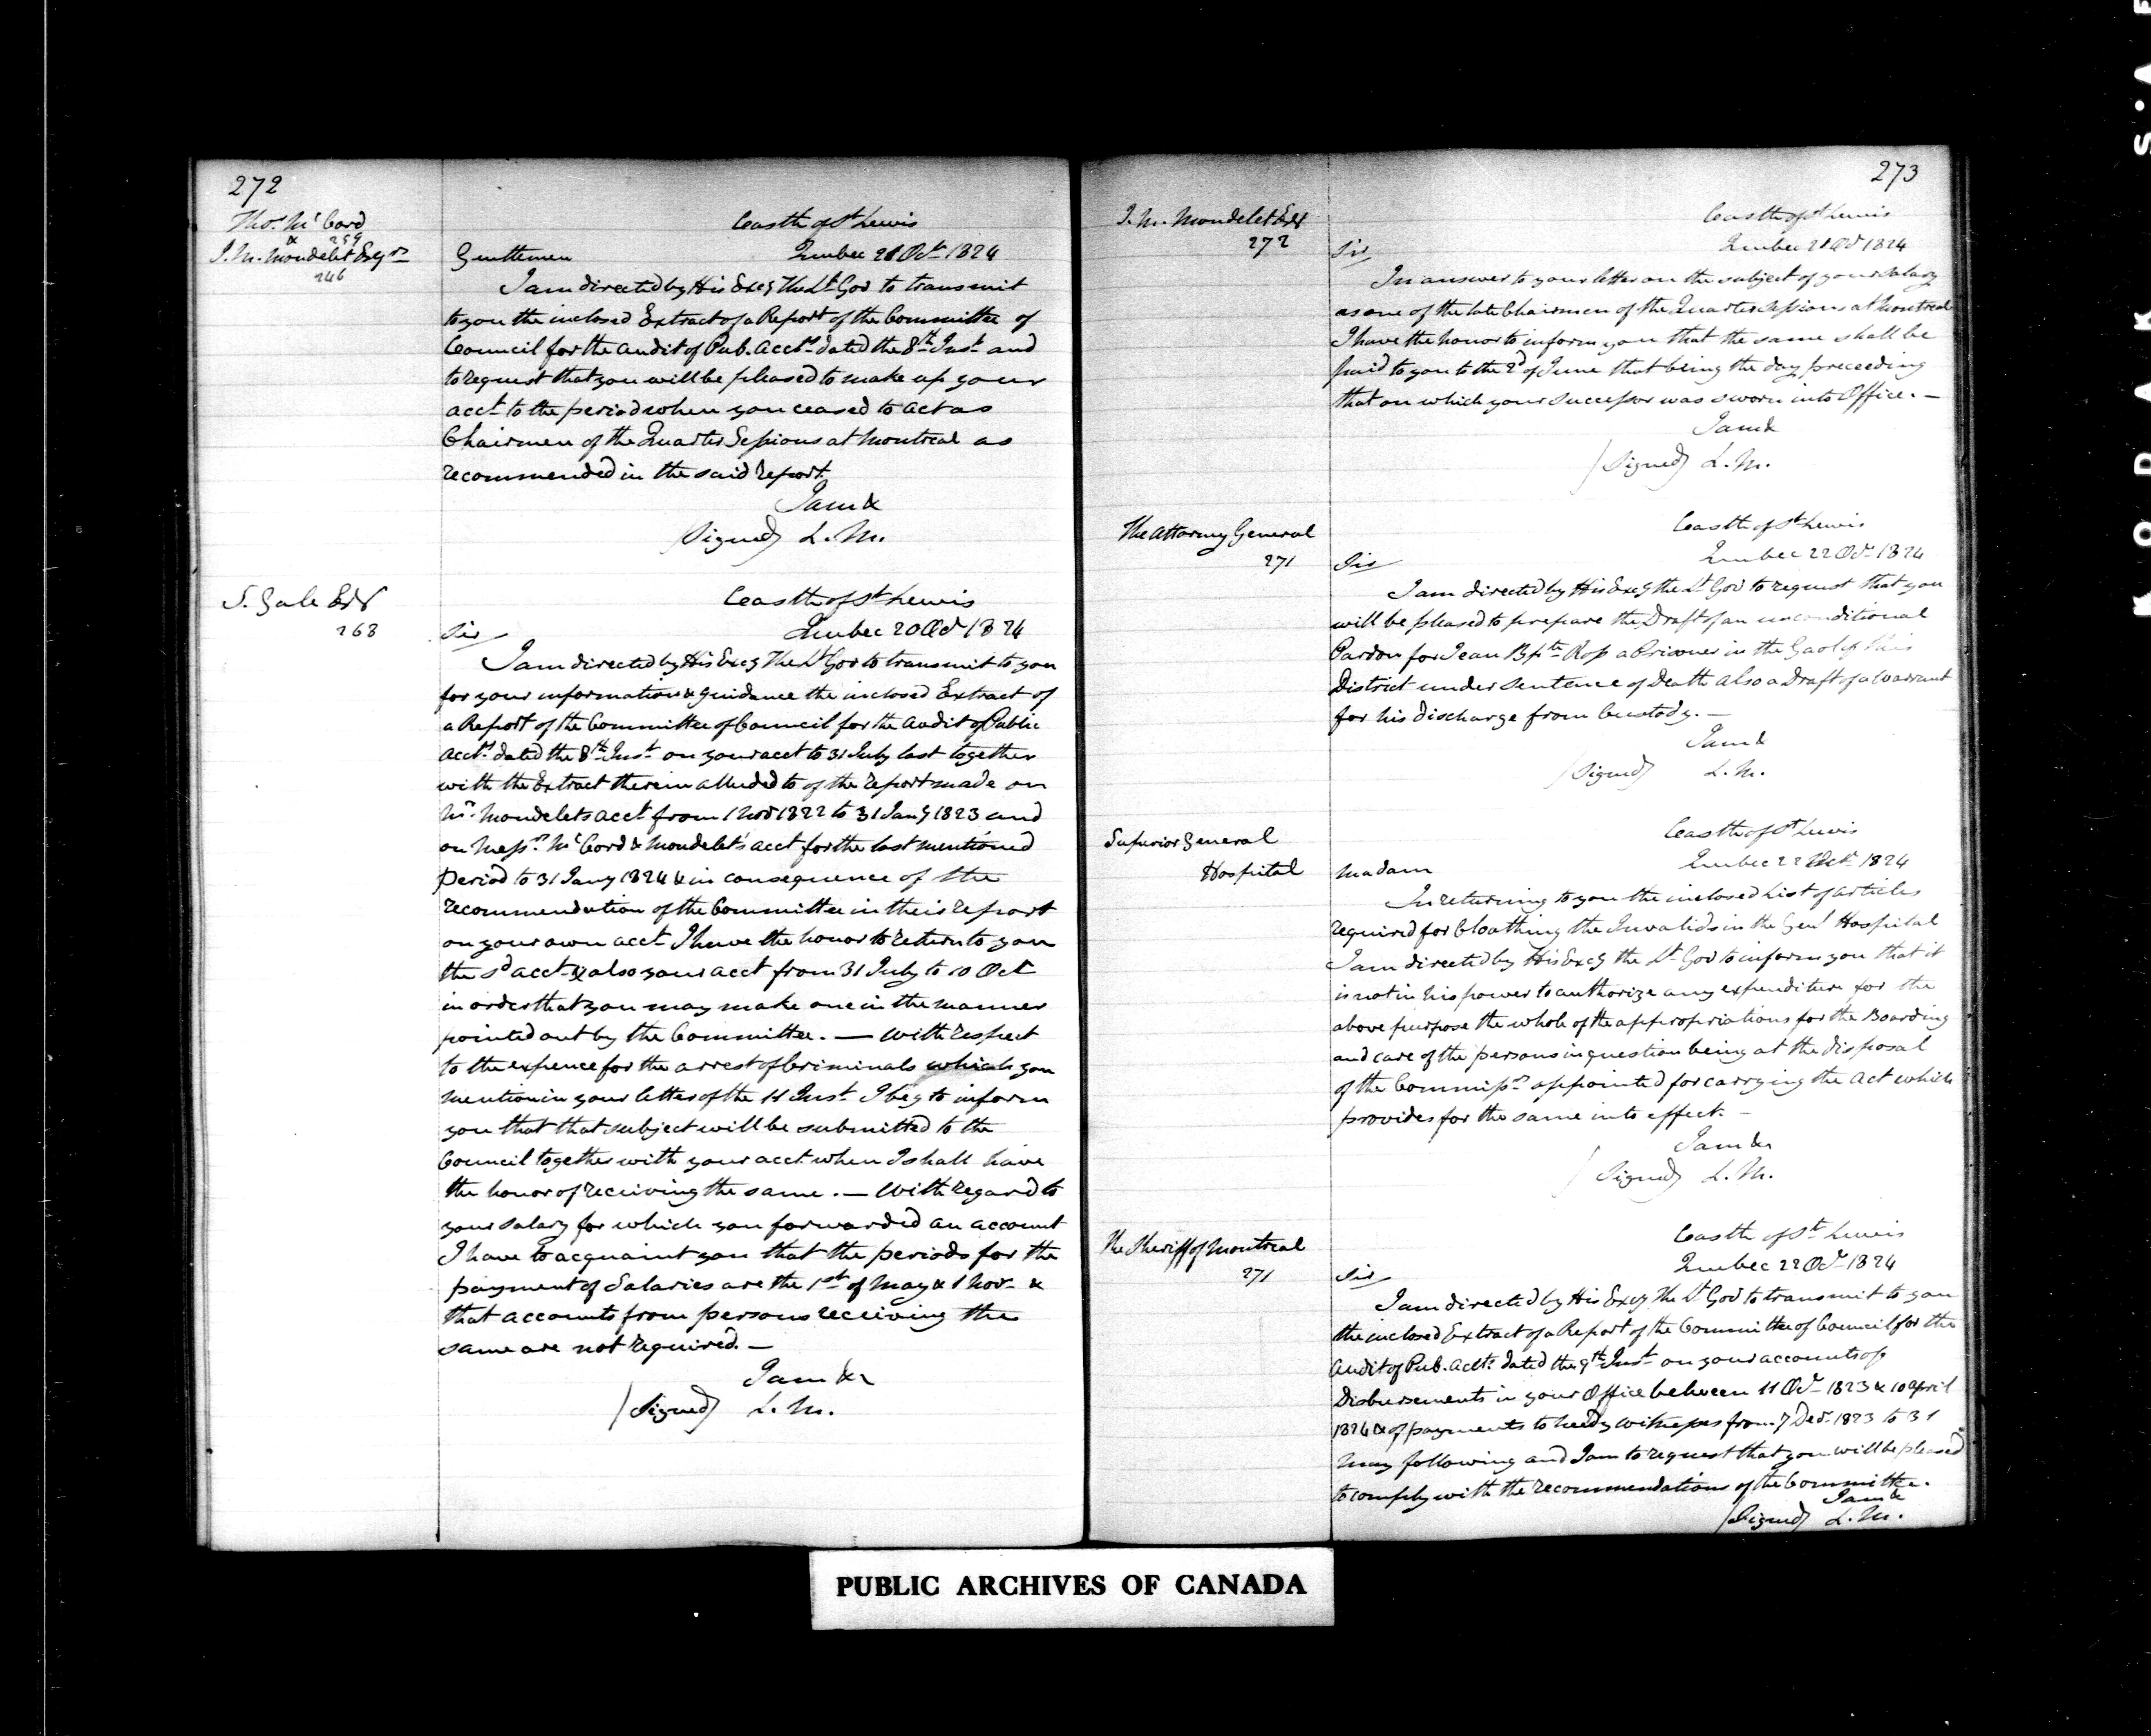 272
Thos. McCord
& 259
J. M. Mondelet Esqrs
246
Castle of St Lewis
Quebec 21 Octr 1824
Gentlemen
I am directed by His Excy The Lt Gov to transmit
to you the inclosed Extract of a Report of the Committee of
Council for the audit of Pub. Accts dated the 8th Inst and
to request that you will be pleased to make up your
acct to the period when you ceased to act as
Chairmen of the Quarter Sessions at Montreal as
recommended in the said report.
I am &
(Signed) L. M.
S. Gale Esqr
268
Castle of St Lewis
Quebec 20 Oct 1824
Sir
I am directed by His Excy The Lt Gov to transmit to you
for your information & guidance the inclosed Extract of
a Report of the Committee of Council for the Audit of Public
Accts dated the 8th Inst on your acct to 31 July last together
with the Extract therein alluded to of the report made on
Mr Mondelets acct from 1 Nov 1822 to 31 Jany 1823 and
on Messrs McCord & Mondelet's acct for the last mentioned
period to 31 Jany 1824 & in consequence of the
recommendation of the Committee in their report
on your own acct I have the honor to return to you
the sd acct & also your acct from 31 July to 10 Oct
in order that you may make one in the manner
pointed out by the Committee. — With respect
to the expence for the arrest of Criminals which you
mention in your letter of the 11 Inst I beg to inform
you that that subject will be submitted to the
Council together with your acct when I shall have
the honor of receiving the same. — With regard to
your salary for which you forwarded an account
I have to acquaint you that the periods for the
payment of Salaries are the 1st of May & 1 Nov &
that accounts from persons receiving the
same are not required. —
I am &c
(Signed) L. M.
273
J. M. Mondelet Esqr
272
Castle of St Lewis
Quebec 21 Oct 1824
Sir
In answer to your letter on the subject of your salary
as one of the late Chairmen of the Quarter Sessions at Montreal
I have the honor to inform you that the same shall be
paid to you to the 2d of June that being the day preceeding
that on which your successor was sworn into Office. —
I am &
(Signed) L. M.
The Attorney General
271
Castle of St Lewis
Quebec 22 Oct 1824
Sir
I am directed by His Excy the Lt Gov to request that you
will be pleased to prepare the Draft of an unconditional
Pardon for Jean Bpte Ross a Prisoner in the Gaol of this
District under Sentence of Death also a Draft of a Warrant
for his discharge from Custody. —
I am &
(Signed) L. M.
Superior General
Hospital
Castle of St Lewis
Quebec 22 Oct 1824
Madam
In returning to you the inclosed List of articles
required for Cloathing the Invalids in the Genl Hospital
I am directed by His Excy the Lt Gov to inform you that it
is not in his power to authorize any expenditure for the
above purpose the whole of the appropriations for the Boarding
and care of the persons in question being at the disposal
of the Commissrs appointed for carrying the Act which
provides for the same into effect. —
I am &c
(Signed) L. M.
The Sheriff of Montreal
271
Castle of St Lewis
Quebec 22 Oct 1824
Sir
I am directed by His Excy The Lt Gov to transmit to you
the inclosed Extract of a Report of the Committee of Council for the
audit of Pub. Accts dated the 9th Inst on your accounts of
Disbursements in your Office between 11 Oct 1823 & 10 April
1824 & of payments to needy witnesses from 7 Decr 1823 to 31
May following and I am to request that you will be pleased
to comply with the recommendations of the Committee.
I am &
(Signed) L. M.
PUBLIC ARCHIVES OF CANADA
KODAK S·A